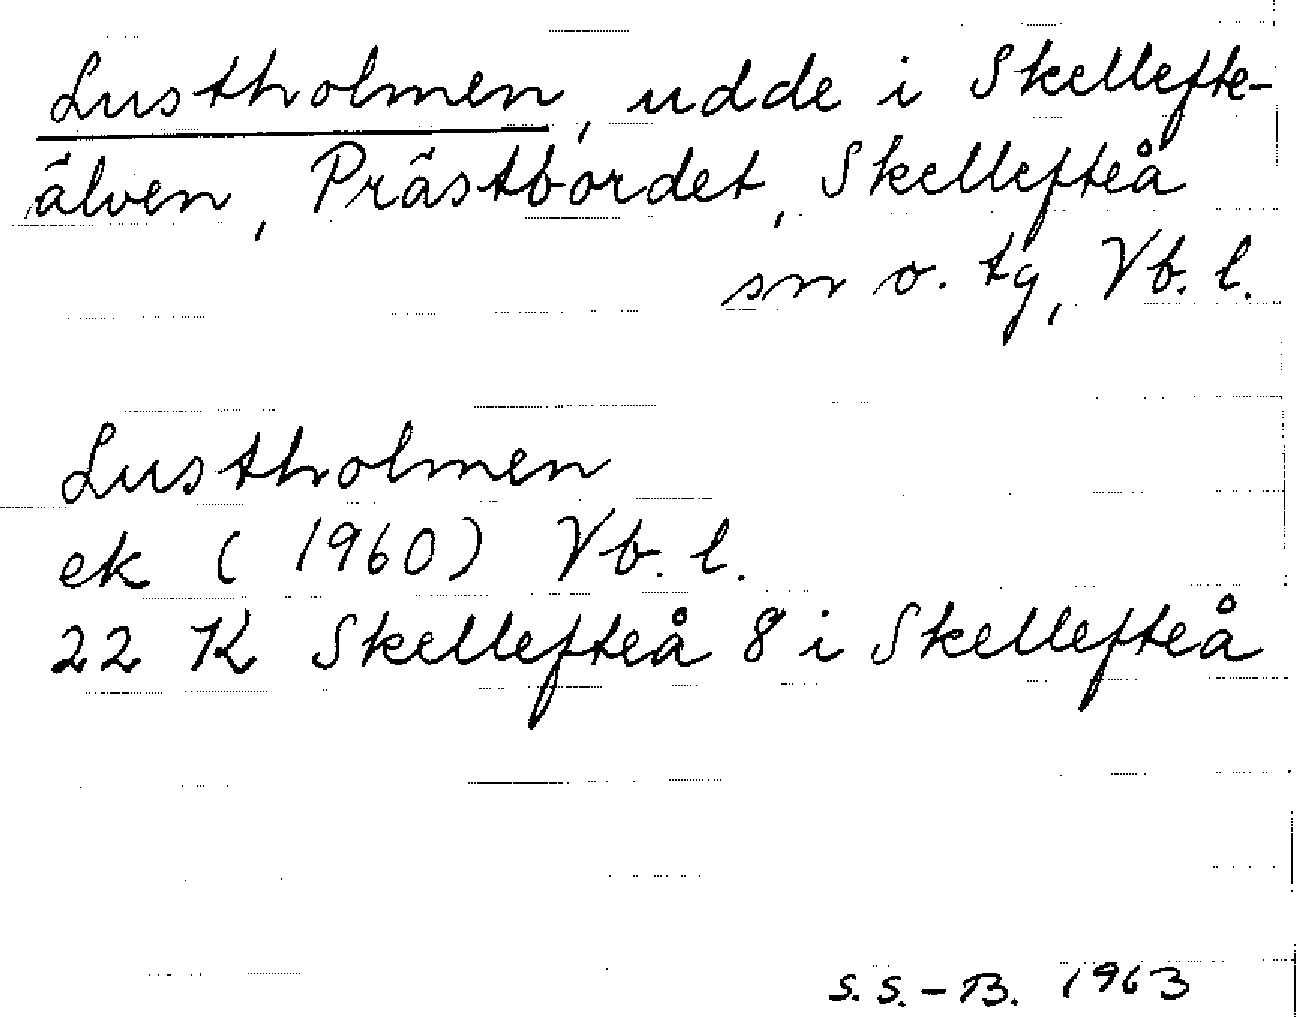 Lustholmen, udde i Skellefte-
älven, Prästbordet, Skellefteå
sn o. tg, Vb. l.
Lustholmen
ek (1960) Vb. l.
22 K Skellefteå 8 i Skellefteå
S. S. - B. 1963